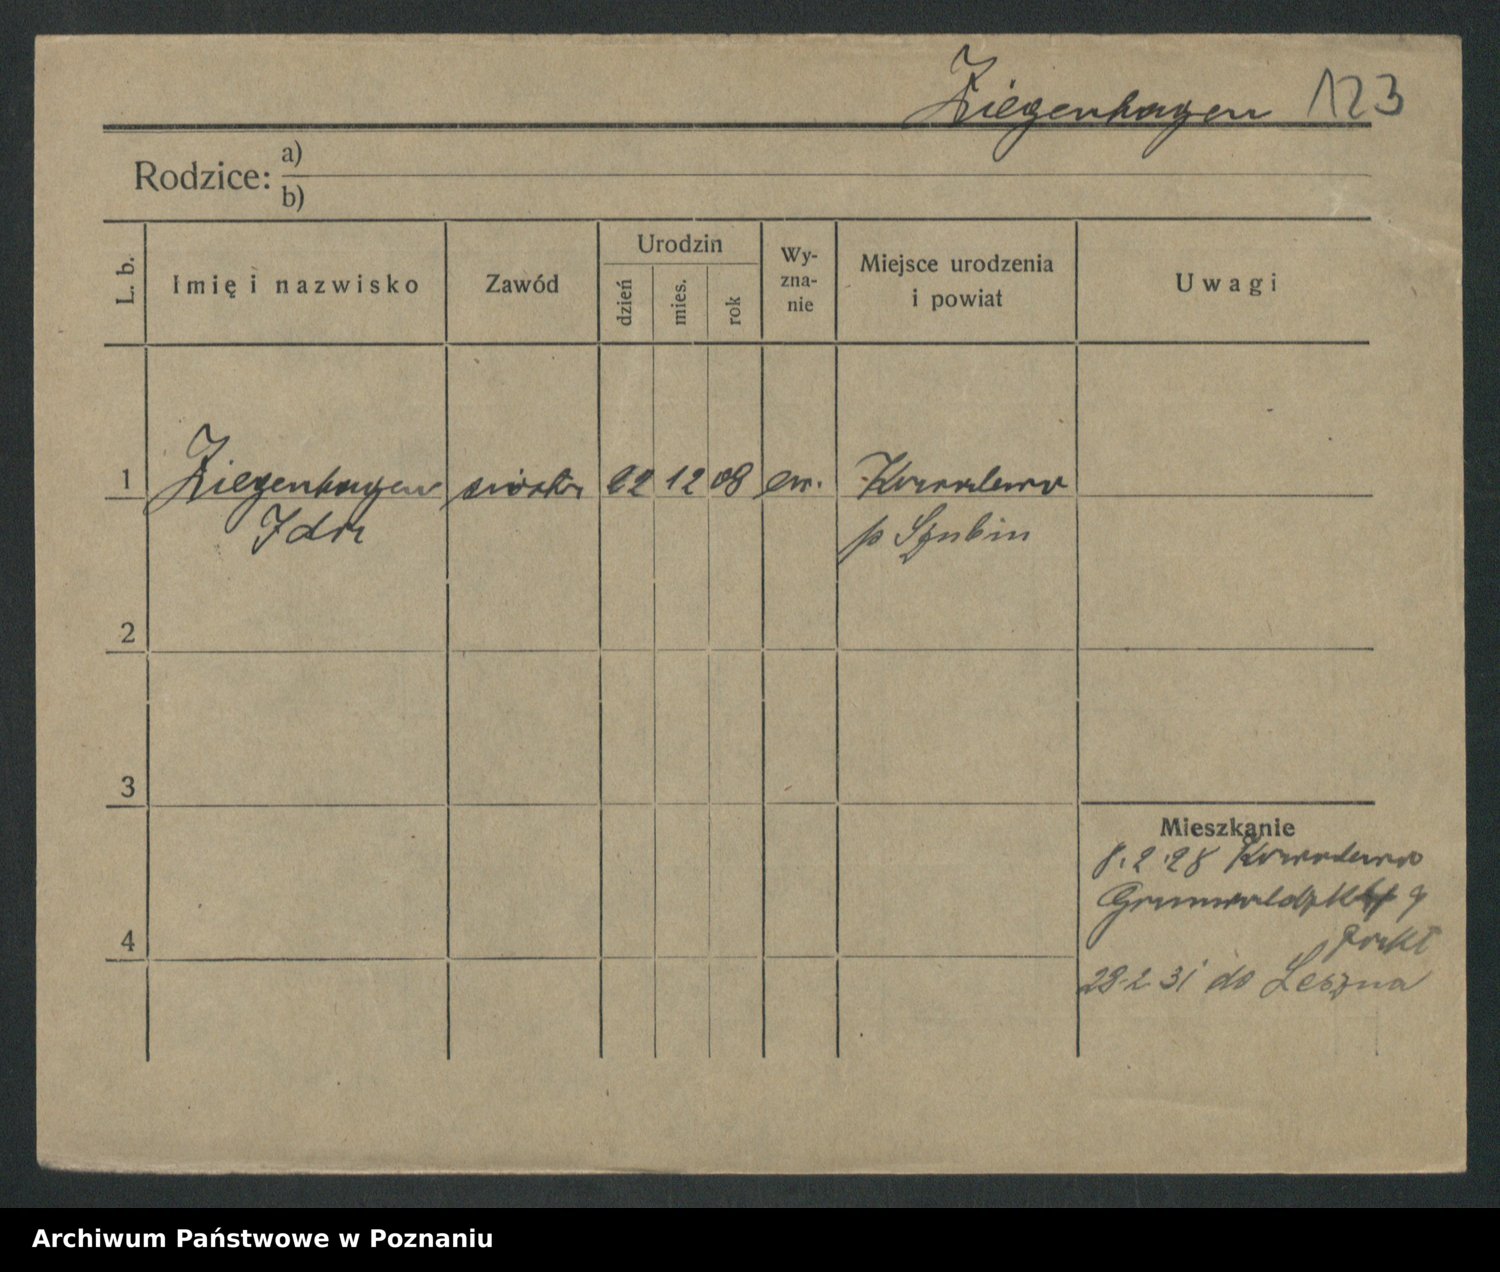 Ziegenhagen 123
Rodzice: a)
b)
L. b.
Imię i nazwisko
Zawód
Urodzin
dzień
mies.
rok
Wy-
zna-
nie
Miejsce urodzenia
i powiat
Uwagi
1 Ziegenhagen siostra 22 12 08 ew. Kowalewo
Ida p Szubin
2
3
Mieszkanie
8.2.28 Kowalewo
9
4
28-2 31 do Leszna
Archiwum Państwowe w Poznaniu